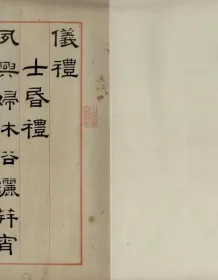 儀禮
士昏禮
夙興婦沐浴纚笄宵